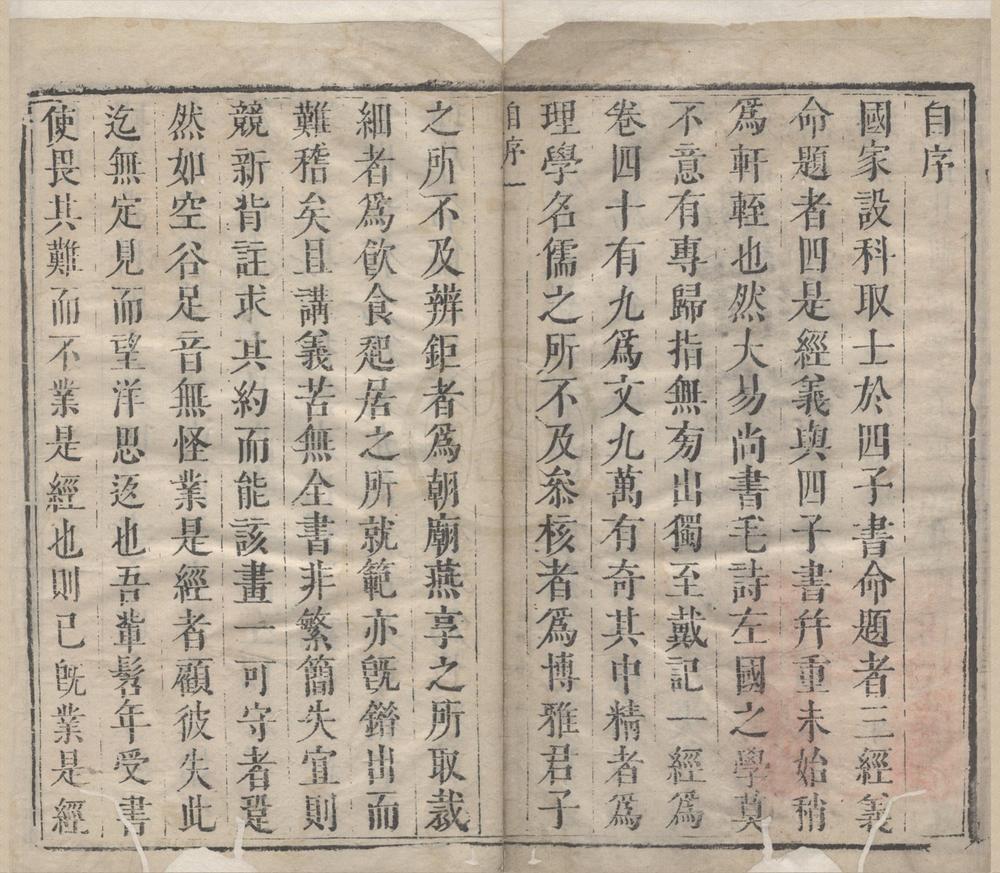 自序
國家設科取士於四子書命題者三經義
命題者四是經義與四子書并重未始稍
爲軒輊也然大易尚書毛詩左國之學莫
不意有專歸指無旁出獨至戴記一經爲
卷四十有九爲文九萬有奇其中精者爲
理學名儒之所不及叅核者爲博雅君子
自序 一
之所不及辨鉅者爲朝廟燕享之所取裁
細者爲飲食起居之所就範亦旣錯出而
難稽矣且講義苦無全書非繁簡失宜則
競新背註求其約而能該畫一可守者寔
然如空谷足音無怪業是經者顧彼失此
迄無定見而望洋思返也吾輩髫年受書
使畏其難而不業是經也則已旣業是經